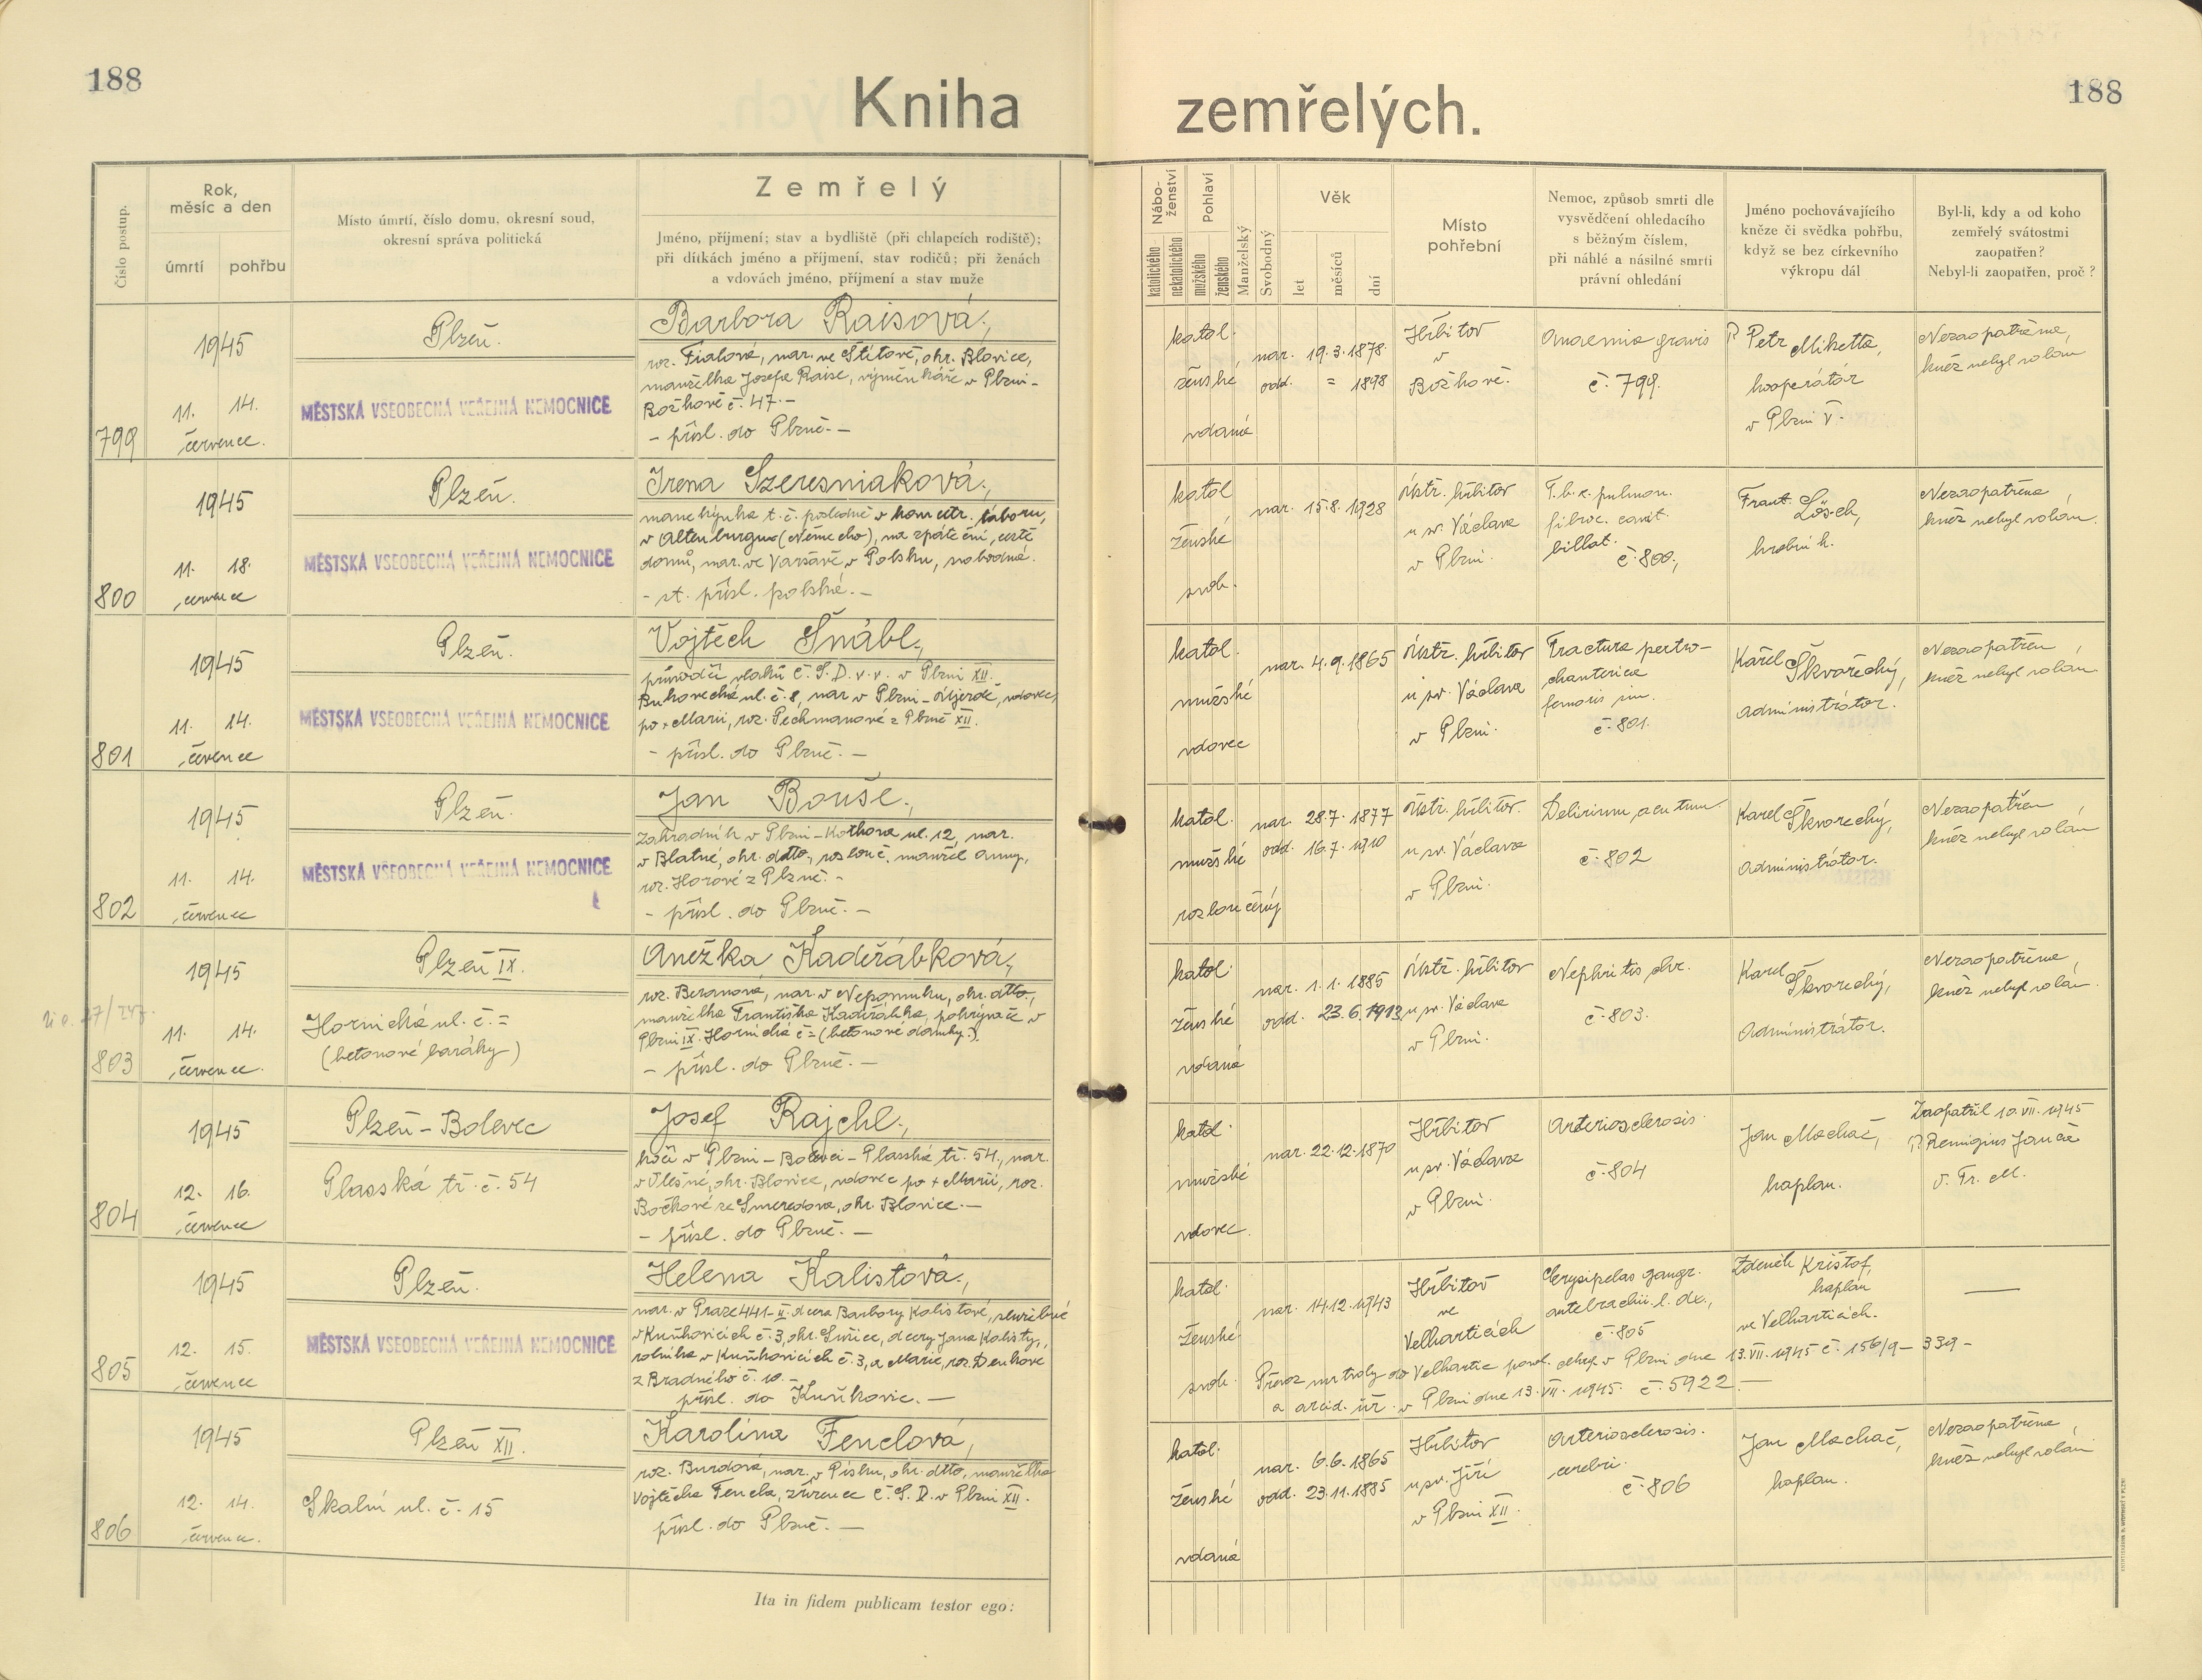 188
188
Kniha zemřelých.
Číslo postup.
Rok,
měsíc a den
úmrtí
pohřbu
Místo úmrtí, číslo domu, okresní soud,
okresní správa politická
Zemřelý
Jméno, příjmení; stav a bydliště (při chlapcích rodiště);
při dítkách jméno a příjmení, stav rodičů; při ženách
a vdovách jméno, příjmení a stav muže
Nábo-
ženství
katolického
nekatolického
Pohlaví
mužského
ženského
Manželský
Svobodný
Věk
let
měsíců
dní
Místo
pohřební
Nemoc, způsob smrti dle
vysvědčení ohledacího
s běžným číslem,
při náhlé a násilné smrti
právní ohledání
Jméno pochovávajícího
kněze či svědka pohřbu,
když se bez církevního
výkropu dál
Byl-li, kdy a od koho
zemřelý svátostmi
zaopatřen?
Nebyl-li zaopatřen, proč?
799
1945
11. 14.
července.
Plzeň.
MĚSTSKÁ VŠEOBECNÁ VEŘEJNÁ NEMOCNICE
Barbora Raisová,
roz. Fialová, nar. ve Štítově, okr. Blovice,
manželka Josefa Raise, výměnkáře v Plzni-
Božkově č. 47.-
- přísl. do Plzně.-
katol.
ženské
vdaná
nar. 19.3.1878.
odd. = 1898
Hřbitov
v
Božkově.
Anaemia gravis
č. 799.
P. Petr Miketta,
kooperátor
v Plzni V.
Nezaopatřena,
kněz nebyl volán
800
1945
11. 18.
července
Plzeň.
MĚSTSKÁ VŠEOBECNÁ VEŘEJNÁ NEMOCNICE
Irena Szeresniaková,
t. č. posledně v koncetr. táboru,
v Altenburgu (Německo), na zpáteční cestě
domů, nar. ve Varšavě v Polsku, svobodná.
- st. přísl. polské.-
katol
ženské
svob.
nar. 15.8.1928
Ústř. hřbitov
u sv. Václava
v Plzni.
T.b.c. pulmon.
fibroc. cavit.
billat.
č. 800.,
Frant. Lösch,
hrobník.
Nezaopatřena
kněz nebyl volán.
801
1945
11. 14.
července
Plzeň.
MĚSTSKÁ VŠEOBECNÁ VEŘEJNÁ NEMOCNICE
Vojtěch Šnábl,
průvodčí vlaků Č.S.D. v.v. v Plzni XII.
ul. č. 8, nar v Plzni- vdovec
po + Marii, roz. Pechmanové z Plzně XII.
- přísl. do Plzně.-
katol.
mužské
vdovec
nar. 4.9.1865
Ústř. hřbitov
u sv. Václava
v Plzni.
Fractura pertro-
chanterica
femoris sin.
č. 801.
Karel Škvořecký,
administrátor.
Nezaopatřen
kněz nebyl volán
802
1945
11. 14.
července
Plzeň.
MĚSTSKÁ VŠEOBECNÁ VEŘEJNÁ NEMOCNICE
Jan Bouše,
zahradník v Plzni-Kotkova ul. 12, nar.
v Blatné, okr. dtto, rozlouč. manžel Anny,
roz. Horové z Plzně.-
- přísl. do Plzně.-
katol.
mužské
rozloučený
nar. 28.7.1877
odd. 16.7.1910
Ústř. hřbitov
u sv. Václava
v Plzni.
Delirium acutum
č. 802
Karel Škvorecký,
administrátor.
Nezaopatřen
kněz nebyl volán
803
1945
11. 14.
července.
Plzeň IX.
Hornická ul. č. =
(betonové baráky)
Anežka Kadeřábková,
roz. Beranova, nar. v Nepomuku, okr. dtto.,
manželka Františka Kadeřábka, pokrývače v
Plzni IX. Hornická č = (betonové domky.).
- přísl. do Plzně.-
katol.
ženské
vdaná
nar. 1.1.1885
odd. 23.6.1913
Ústř. hřbitov
u sv. Václava
v Plzni.
Nephritis chr.
č. 803.
Karel Škvorecký,
Administrátor.
Nezaopatřena,
kněz nebyl volán.
804
1945
12. 16.
července
Plzeň-Bolevec
Plasská tř. č. 54
Josef Rajchl,
kočí v Plzni-Bolevci-Plasská tř. 54., nar.
okr. Blovice, vdovec po + Marii, roz.
Bočkové ze Smeredova, okr. Blovice.-
- přísl. do Plzně.-
katol
mužské
vdovec.
nar. 22.12.1870
Hřbitov
u sv. Václava
v Plzni.
Arteriosclerosis
č. 804
Jan Machač,
kaplan.
Zaopatřil 10.VII.1945
P. Remigius Janča
O. Fr. M.
805
1945
12. 15.
července
Plzeň.
MĚSTSKÁ VŠEOBECNÁ VEŘEJNÁ NEMOCNICE
Helena Kalistová,
nar. v Praze 441-II. dcera Barbory Kalistové, služebné
v Kuňkovicích č. 3, okr. Sušice, dcery Jana Kalisty,
rolníka v Kuňkovicích č. 3, a Marie, roz. Denkové
z Bradného č. 10.-
přísl. do Kuňkovic.-
katol.
ženské
svob.
nar. 14.12.1943
Hřbitov
ve
Velharticích
Erysipelas gangr.
antebrachii l. dx.,
č. 805
Zdeněk Krištof,
kaplan
ve Velharticích.
—
Převoz mrtvoly do Velhartic povol. v Plzni dne 13.VII.1945 č. 156/9-339-
a arcid. úř. v Plzni dne 13.VII.1945. č. 5922.-
806
1945
12. 14.
července.
Plzeň XII.
Skalní ul. č. 15
Karolina Fenclová,
roz. Burdová, nar. v Písku, okr. dtto, manželka
Vojtěcha Fencla, zřízence Č.S.D. v Plzni XII.
přísl. do Plzně.-
katol.
ženské
vdaná
nar. 6.6.1865
odd. 23.11.1885
Hřbitov
u sv. Jiří
v Plzni XII.
Arteriosclerosis.
cerebri.
č. 806
Jan Machač,
kaplan.
Nezaopatřena,
kněz nebyl volán
Ita in fidem publicam testor ego: